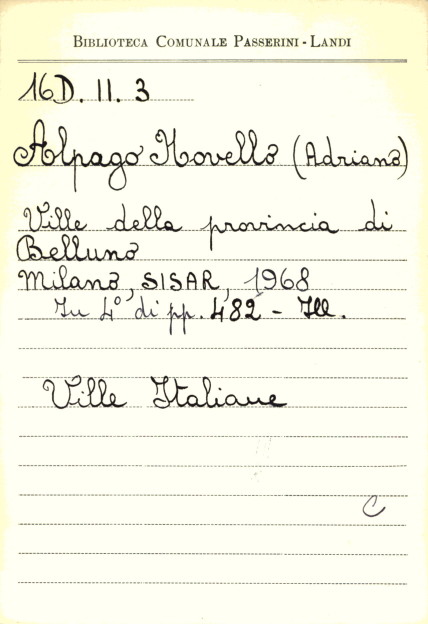 BIBLIOTECA COMUNALE PASSERINI-LANDI
16D. II. 3
Alpago Novello (Adriano)
Ville della provincia di
Belluno
Milano, SISAR, 1968
In 4° di pp. 482 - Ill.
Ville Italiane
C